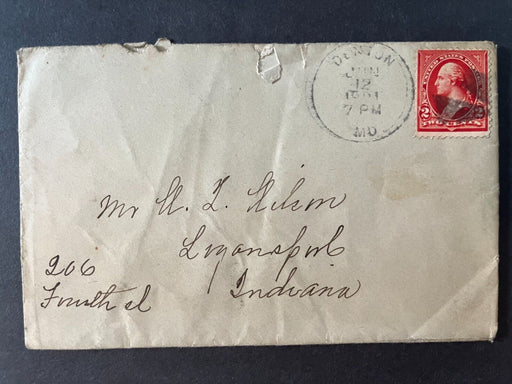 DENTON
JUN
12
1901
7 PM
MO.
2 2
Mr H. L. Wilson
Logansport
Indiana
206
Fourth st